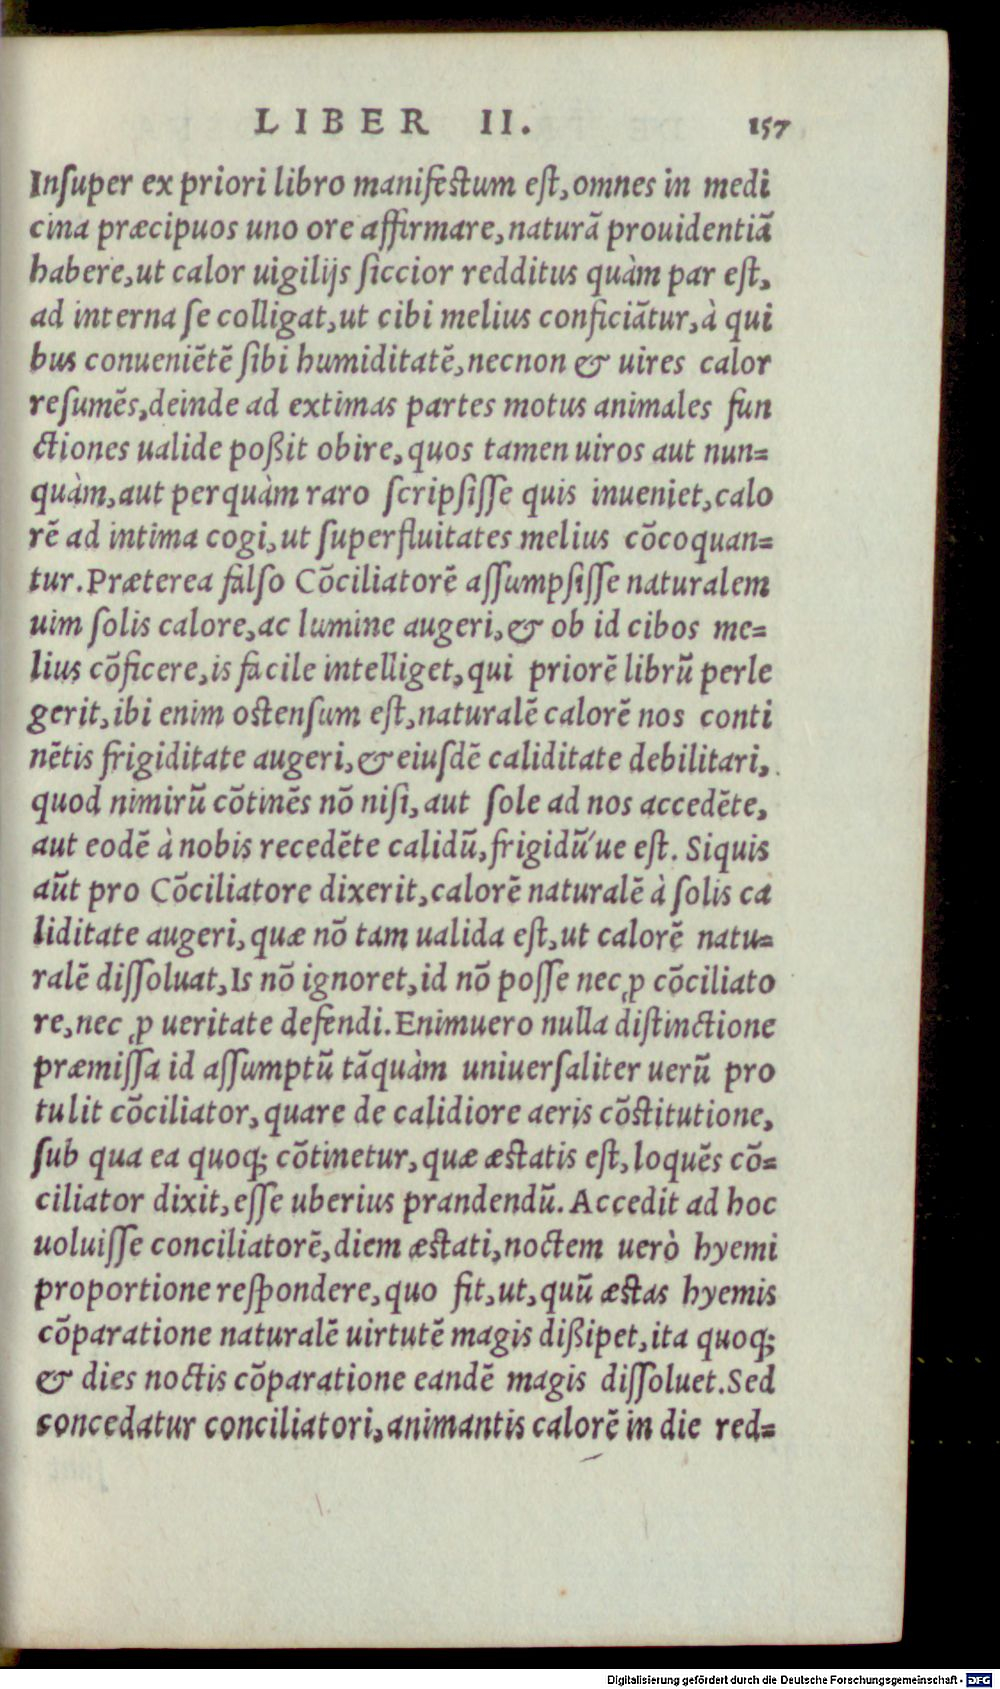 LIBER II. 157
Inſuper ex priori libro manifeſtum eſt, omnes in medi
cina præcipuos uno ore affirmare, naturā prouidentiā
habere, ut calor uigilijs ſiccior redditus quàm par eſt,
ad interna ſe colligat, ut cibi melius conficiātur, à qui
bus conueniētē ſibi humiditatē, necnon & uires calor
reſumēs, deinde ad extimas partes motus animales fun
ctiones ualide poßit obire, quos tamen uiros aut nun=
quàm, aut perquàm raro ſcripſiſſe quis inueniet, calo
rē ad intima cogi, ut ſuperfluitates melius cōcoquan=
tur. Præterea falſo Cōciliatorē aſſumpſiſſe naturalem
uim ſolis calore, ac lumine augeri, & ob id cibos me=
lius cōficere, is facile intelliget, qui priorē librū perle
gerit, ibi enim oſtenſum eſt, naturalē calorē nos conti
nētis frigiditate augeri, & eiuſdē caliditate debilitari,
quod nimirū cōtinēs nō niſi, aut ſole ad nos accedēte,
aut eodē à nobis recedēte calidū, frigidū´ue eſt. Siquis
aūt pro Cōciliatore dixerit, calorē naturalē à ſolis ca
liditate augeri, quæ nō tam ualida eſt, ut calorē natu=
ralē diſſoluat, Is nō ignoret, id nō poſſe nec ꝓ cōciliato
re, nec ꝓ ueritate defendi. Enimuero nulla diſtinctione
præmiſſa id aſſumptū tāquàm uniuerſaliter uerū pro
tulit cōciliator, quare de calidiore aeris cōſtitutione,
ſub qua ea quoq; cōtinetur, quæ æſtatis eſt, loquēs cō=
ciliator dixit, eſſe uberius prandendū. Accedit ad hoc
uoluiſſe conciliatorē, diem æſtati, noctem uerò hyemi
proportione reſpondere, quo fit, ut, quū æſtas hyemis
cōparatione naturalē uirtutē magis dißipet, ita quoq;
& dies noctis cōparatione eandē magis diſſoluet. Sed
concedatur conciliatori, animantis calorē in die red=
Digitalisierung gefördert durch die Deutsche Forschungsgemeinschaft - DFG